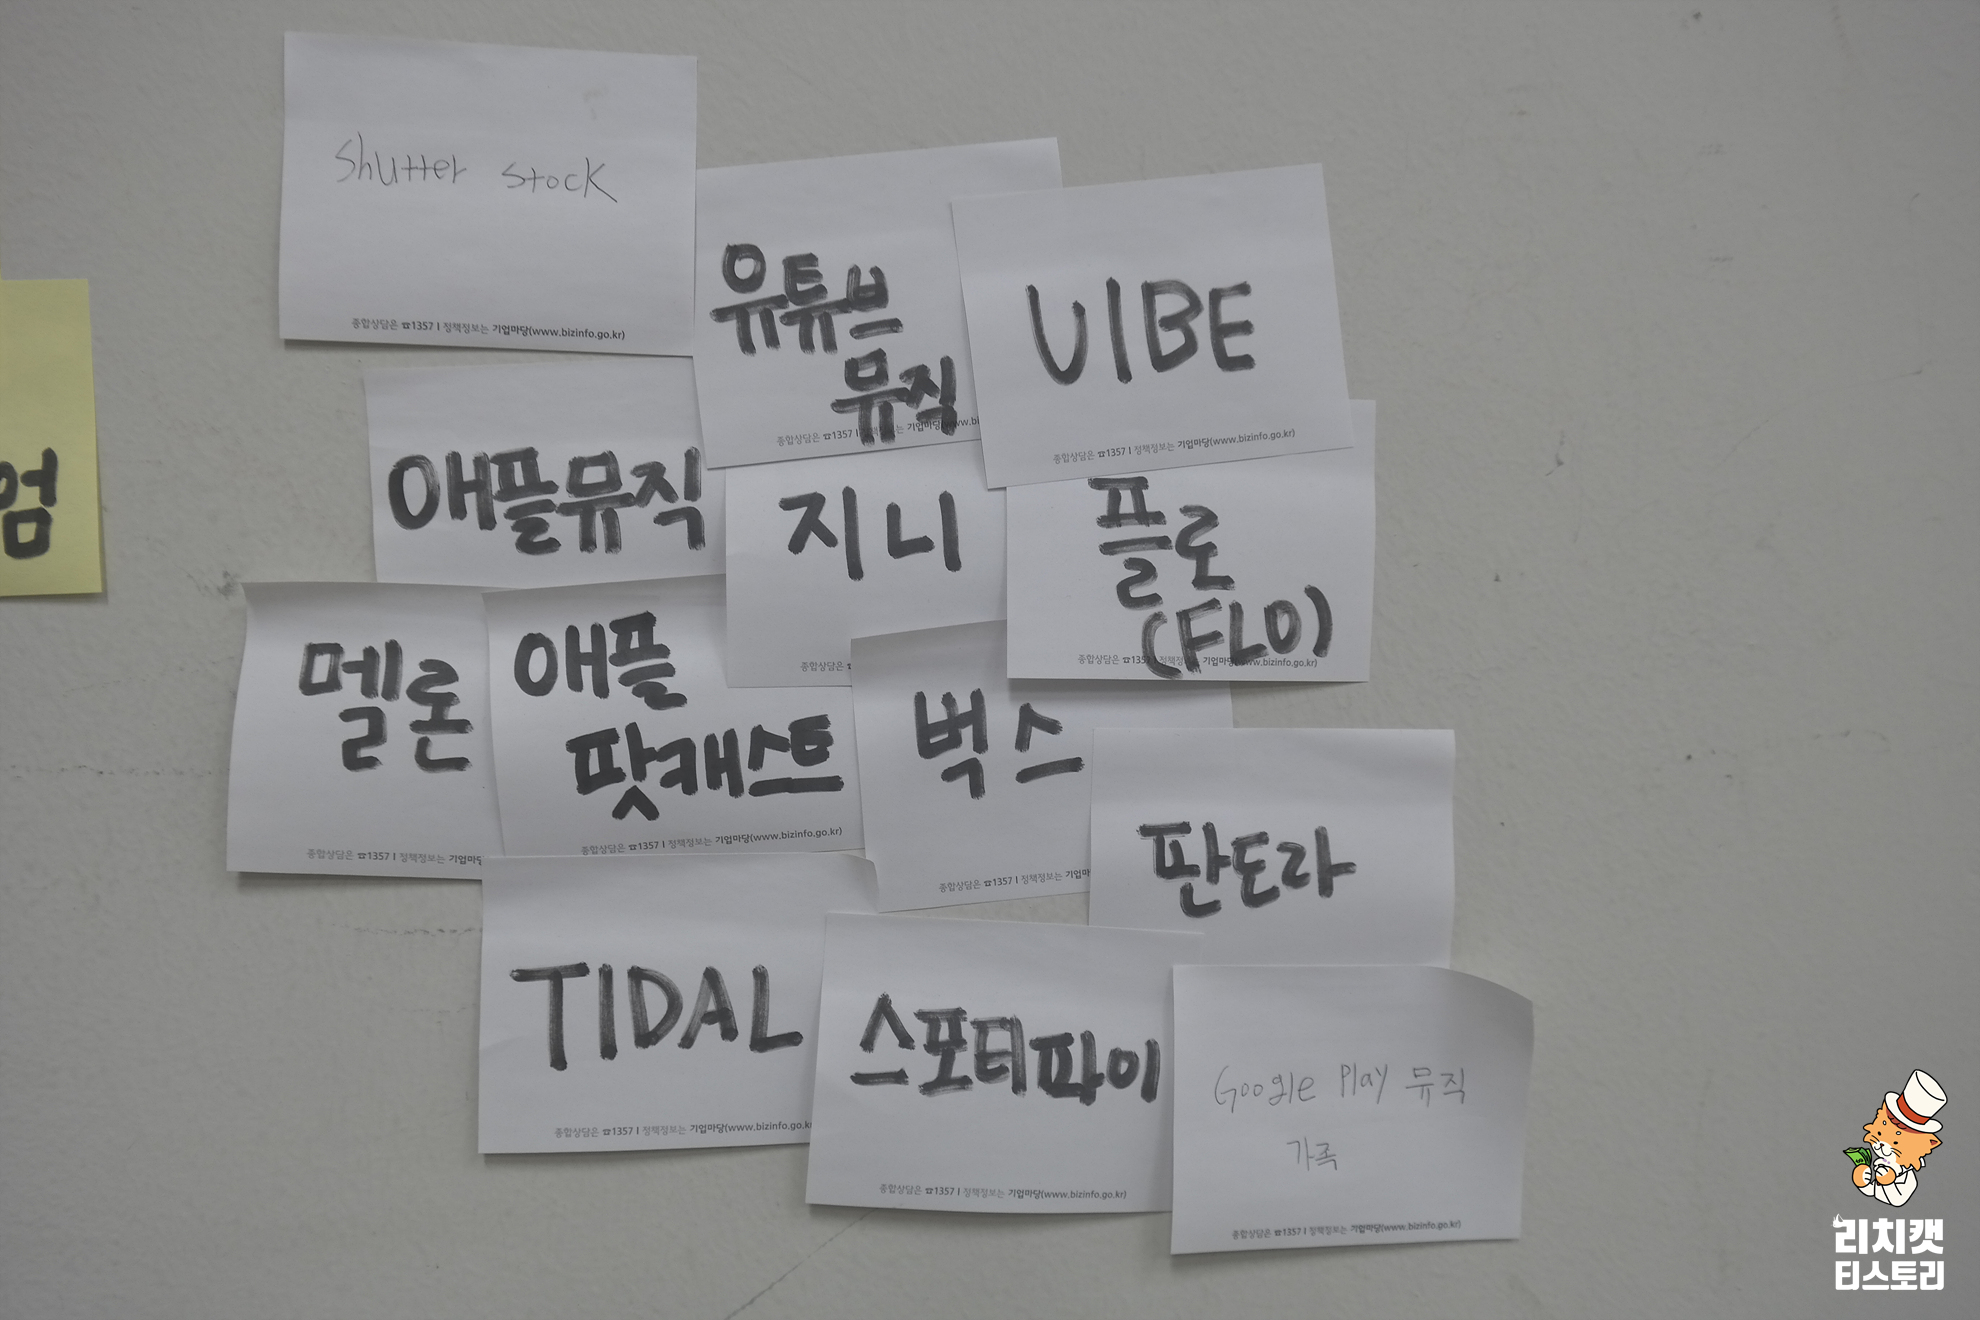 Shutter Stock
종합상담은 ☎1357 I 정책정보는 기업마당(www.bizinfo.go.kr)
유튜브
뮤직
종합상담은 ☎1357 I
기업마당
VIBE
종합상담은 ☎1357 I 정책정보는 기업마당(www.bizinfo.go.kr)
엄
애플뮤직
지니
종합상담은 ☎
플로
(FLO)
종합상담은 ☎1357 I 정책정보는 기업마당(www.bizinfo.go.kr)
멜론
종합상담은 ☎1357 I 정책정보는 기업마당
애플
팟캐스트
종합상담은 ☎1357 I 정책정보는 기업마당(www.bizinfo.go.kr)
벅스
종합상담은 ☎1357 I 정책정보는 기업마
판도라
TIDAL
종합상담은 ☎1357 I 정책정보는 기업마당(www.bizinfo.go.k
스포티파이
종합상담은 ☎1357 I 정책정보는 기업마당(www.bizinfo.go.kr)
Google Play 뮤직
가족
종합상담은 ☎1357 I 정책정보는 기업마당(www.bizinfo.go.kr)
리치캣
티스토리